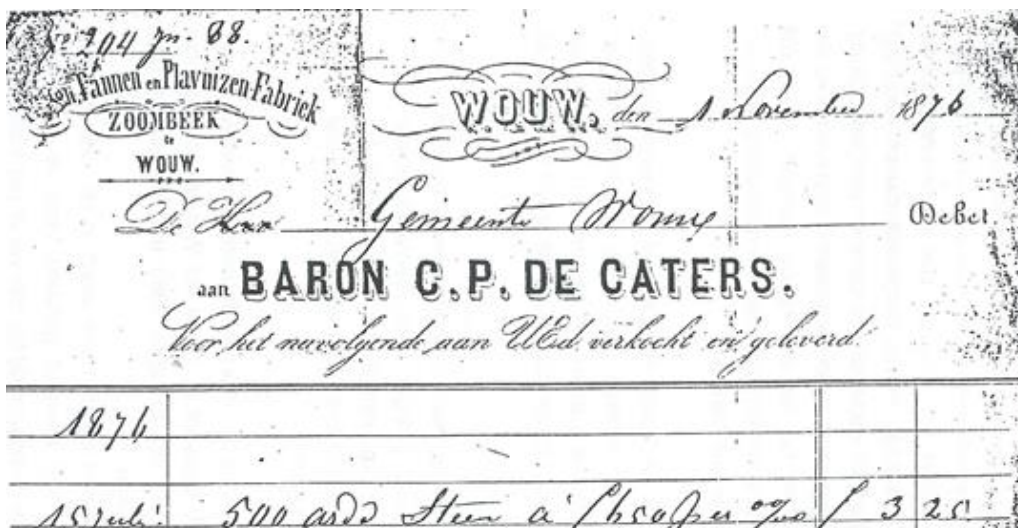 204 jn. 88.
Pannen en Plavuizen-Fabriek
ZOOMBEEK
te
WOUW.
WOUW, den 1 November 1876
De Heer Gemeente Wouw Debet
aan BARON C.P. DE CATERS.
Voor het navolgende aan UEd. verkocht en geleverd.
1876
15 Juli 500 Steen a f 6.50 per f 3 25